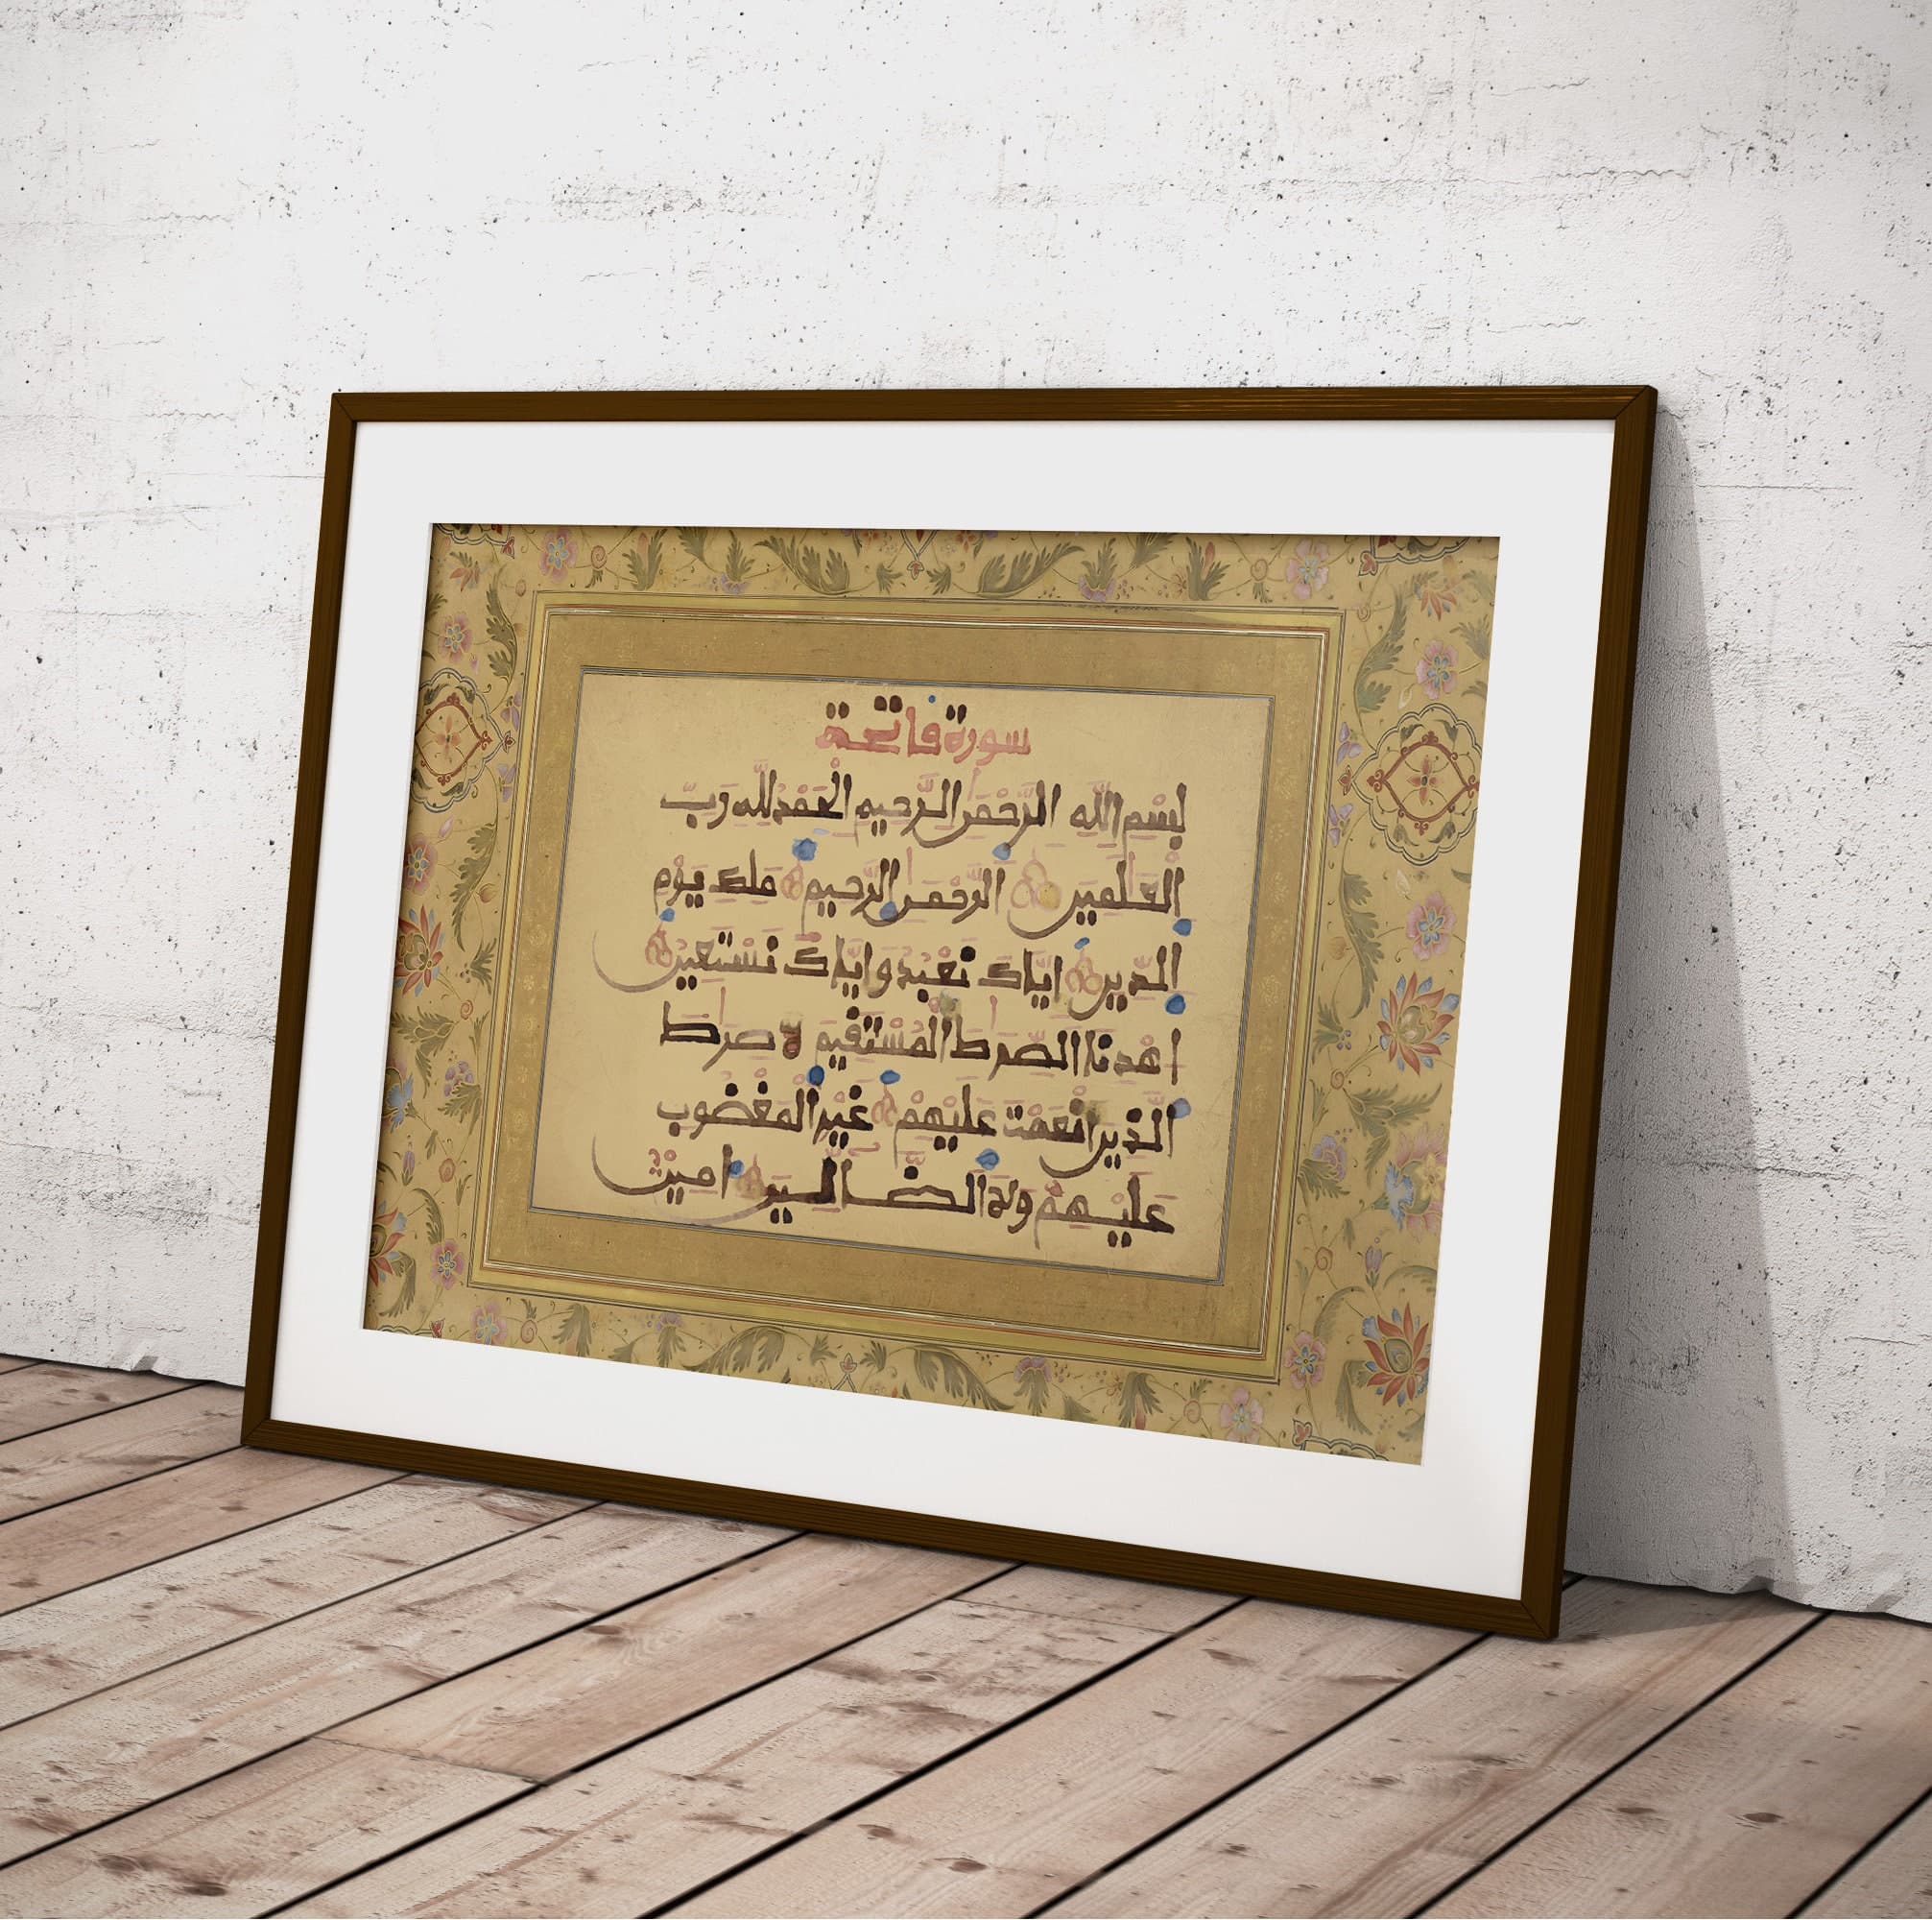 سورة فاتحة
بِسْمِ اللّٰهِ الرَّحْمٰنِ الرَّحِيمِ الْحَمْدُ لِلّٰهِ رَبِّ
الْعٰلَمِينَ الرَّحْمٰنِ الرَّحِيمِ مٰلِكِ يَوْمِ
الدِّينِ اِيَّاكَ نَعْبُدُ وَاِيَّاكَ نَسْتَعِينُ
اهْدِنَا الصِّرٰطَ الْمُسْتَقِيمَ صِرٰطَ
الَّذِينَ اَنْعَمْتَ عَلَيْهِمْ غَيْرِ الْمَغْضُوبِ
عَلَيْهِمْ وَلَا الضَّالِّينَ اٰمِينْ